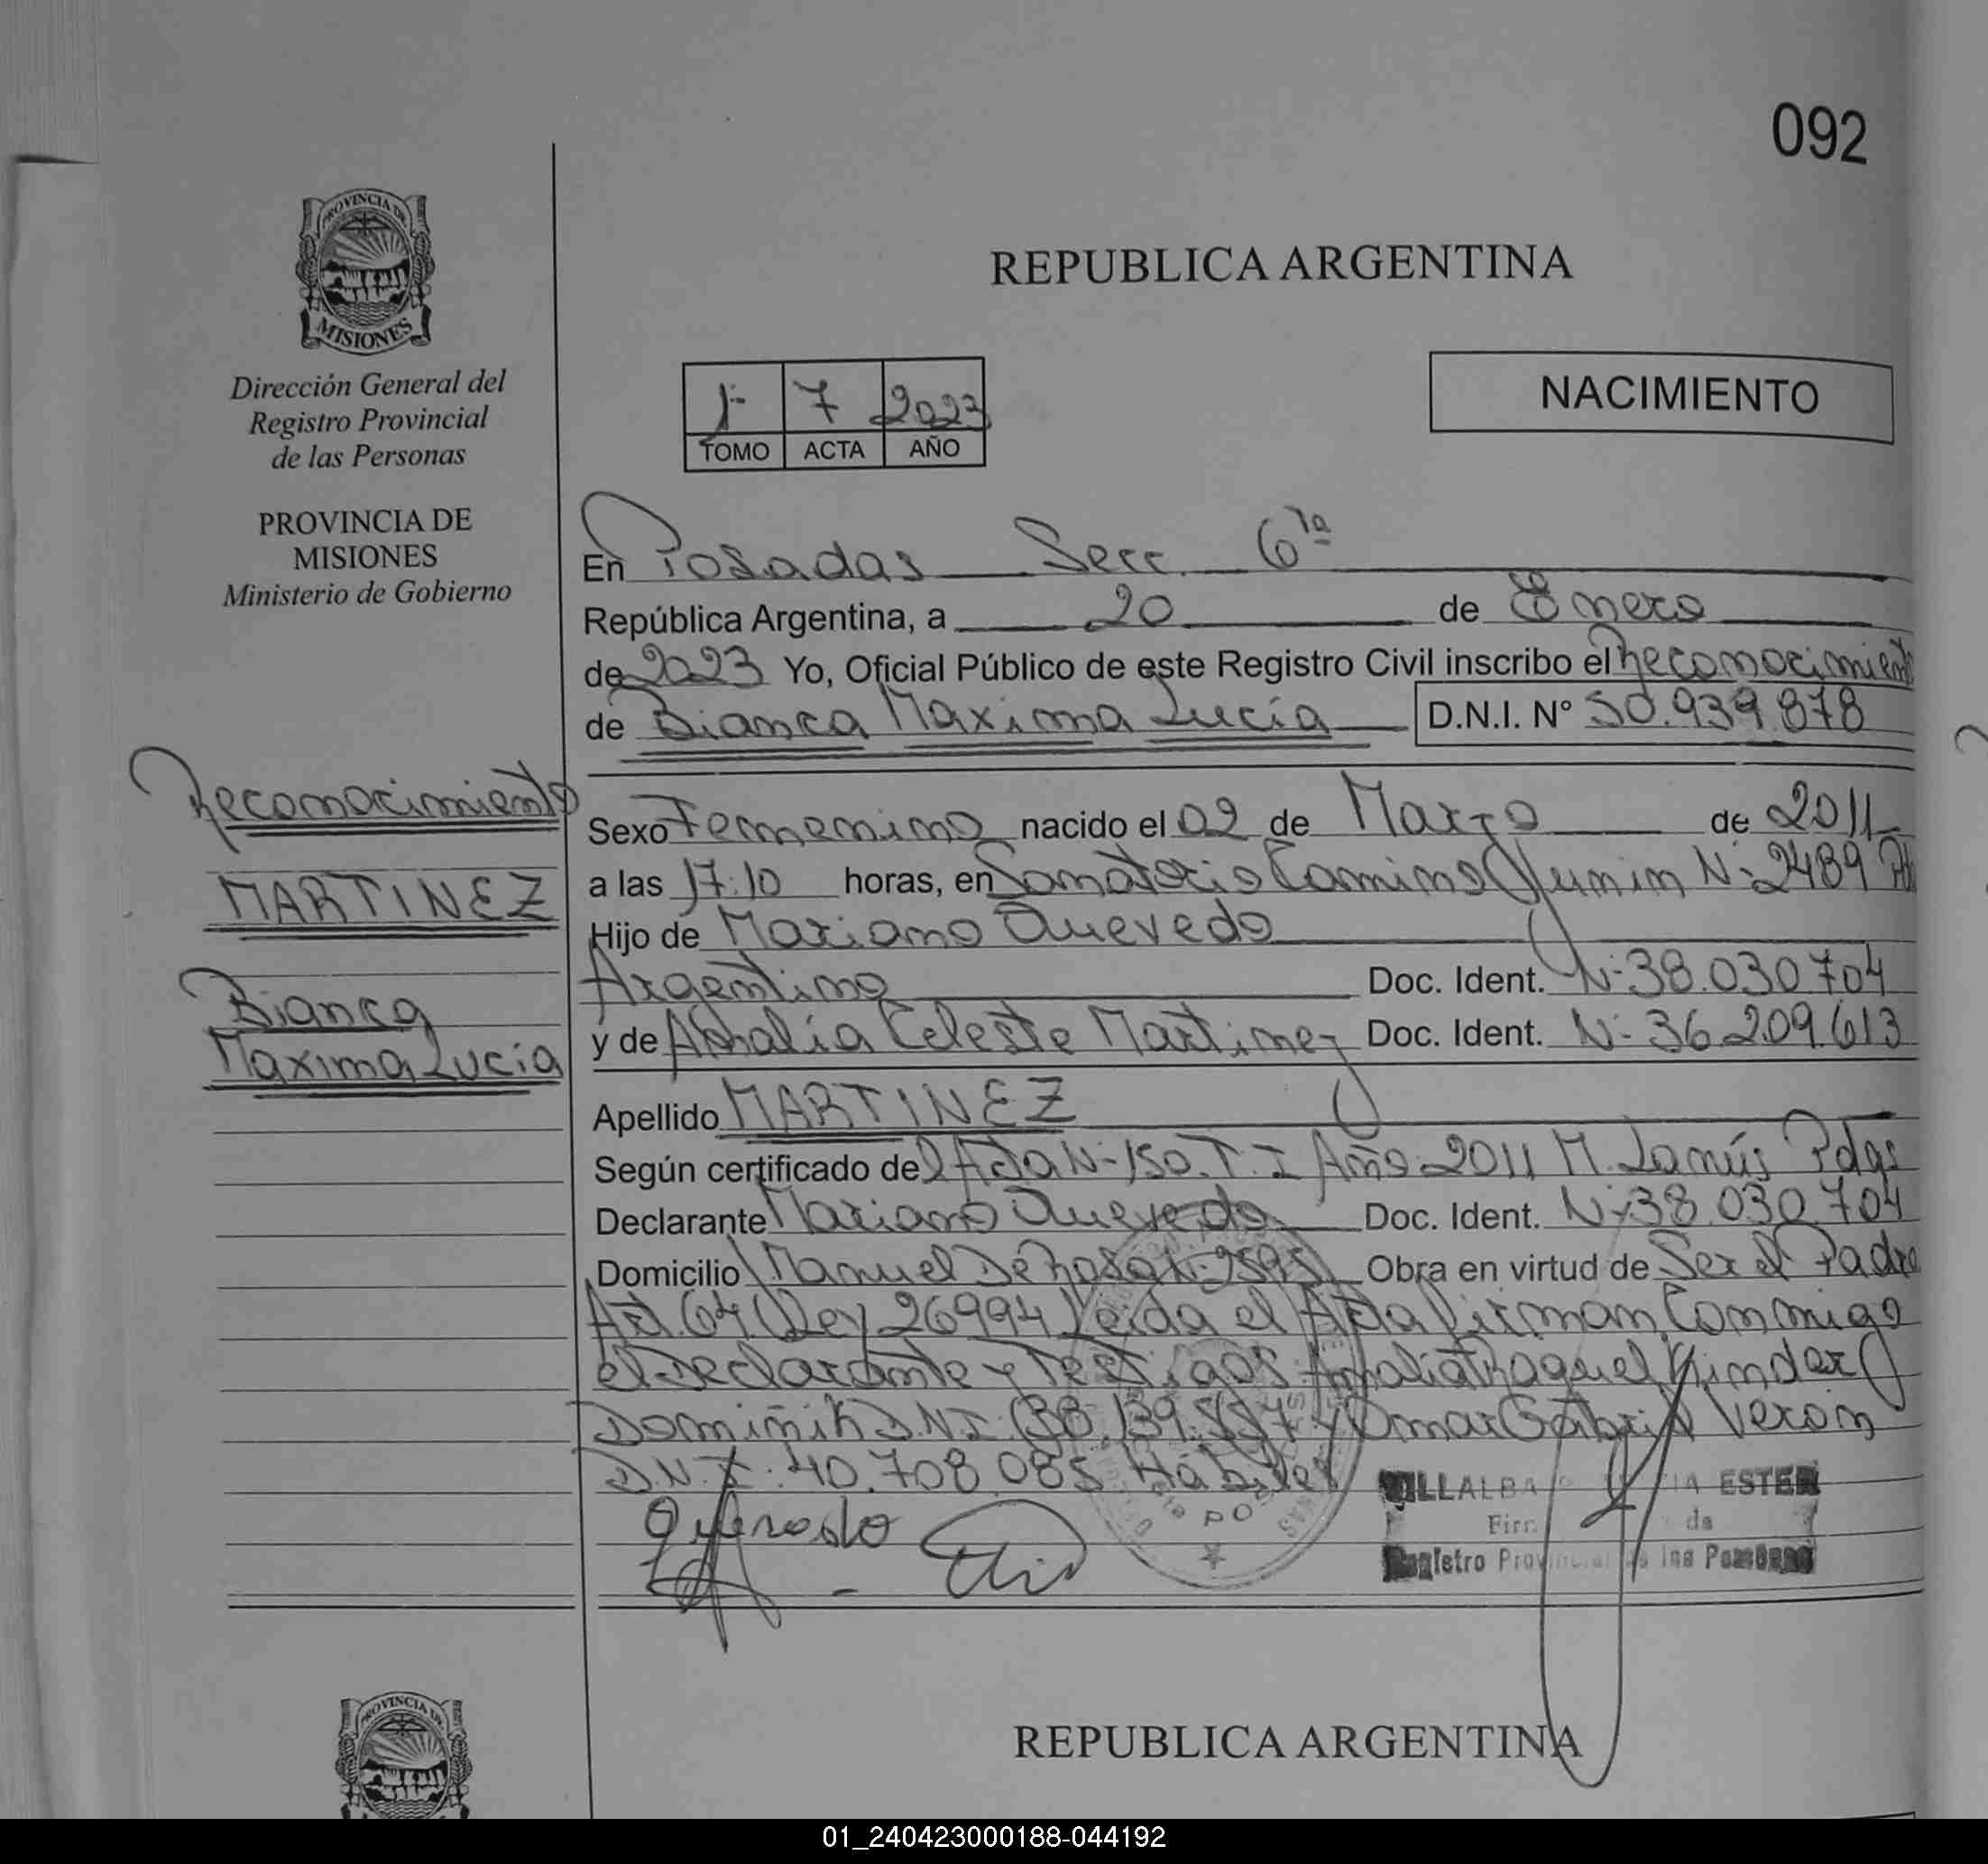 092
PROVINCIA DE
MISIONES
Dirección General del
Registro Provincial
de las Personas
PROVINCIA DE
MISIONES
Ministerio de Gobierno
Reconocimiento
MARTINEZ
Bianca
Maxima Lucía
REPUBLICA ARGENTINA
NACIMIENTO
1º 7 2023
TOMO ACTA AÑO
En Posadas Secc. 6ta
República Argentina, a 20 de Enero
de 2023 Yo, Oficial Público de este Registro Civil inscribo el Reconocimiento
de Bianca Maxima Lucía D.N.I. Nº 50.939.878
Sexo Femenino nacido el 02 de Marzo de 2011
a las 17:10 horas, en Sanatorio Camino Junin Nº 2489
Hijo de Mariano Quevedo
Argentino Doc. Ident. Nº 38.030.704
y de Celeste Martinez Doc. Ident. Nº 36.209.613
Apellido MARTINEZ
Según certificado del Acta Nº 150. T. I Año 2011 M. Lanús Pdas
Declarante Mariano Quevedo Doc. Ident. Nº 38.030.704
Domicilio Manuel De Rosa Nº 9595 Obra en virtud de Ser el Padre
Art. 64 Ley 26994 Leída el Acta firman Conmigo
el Declarante y Testigos Amalia Raquel Kinder
D.N.I. 38.139.557 y Omar Gabriel Veron
D.N.I. 40.708.085 Hábiles
VILLALBA ESTER
Registro Provincial de las Personas
REPUBLICA ARGENTINA
PROVINCIA DE
01_240423000188-044192